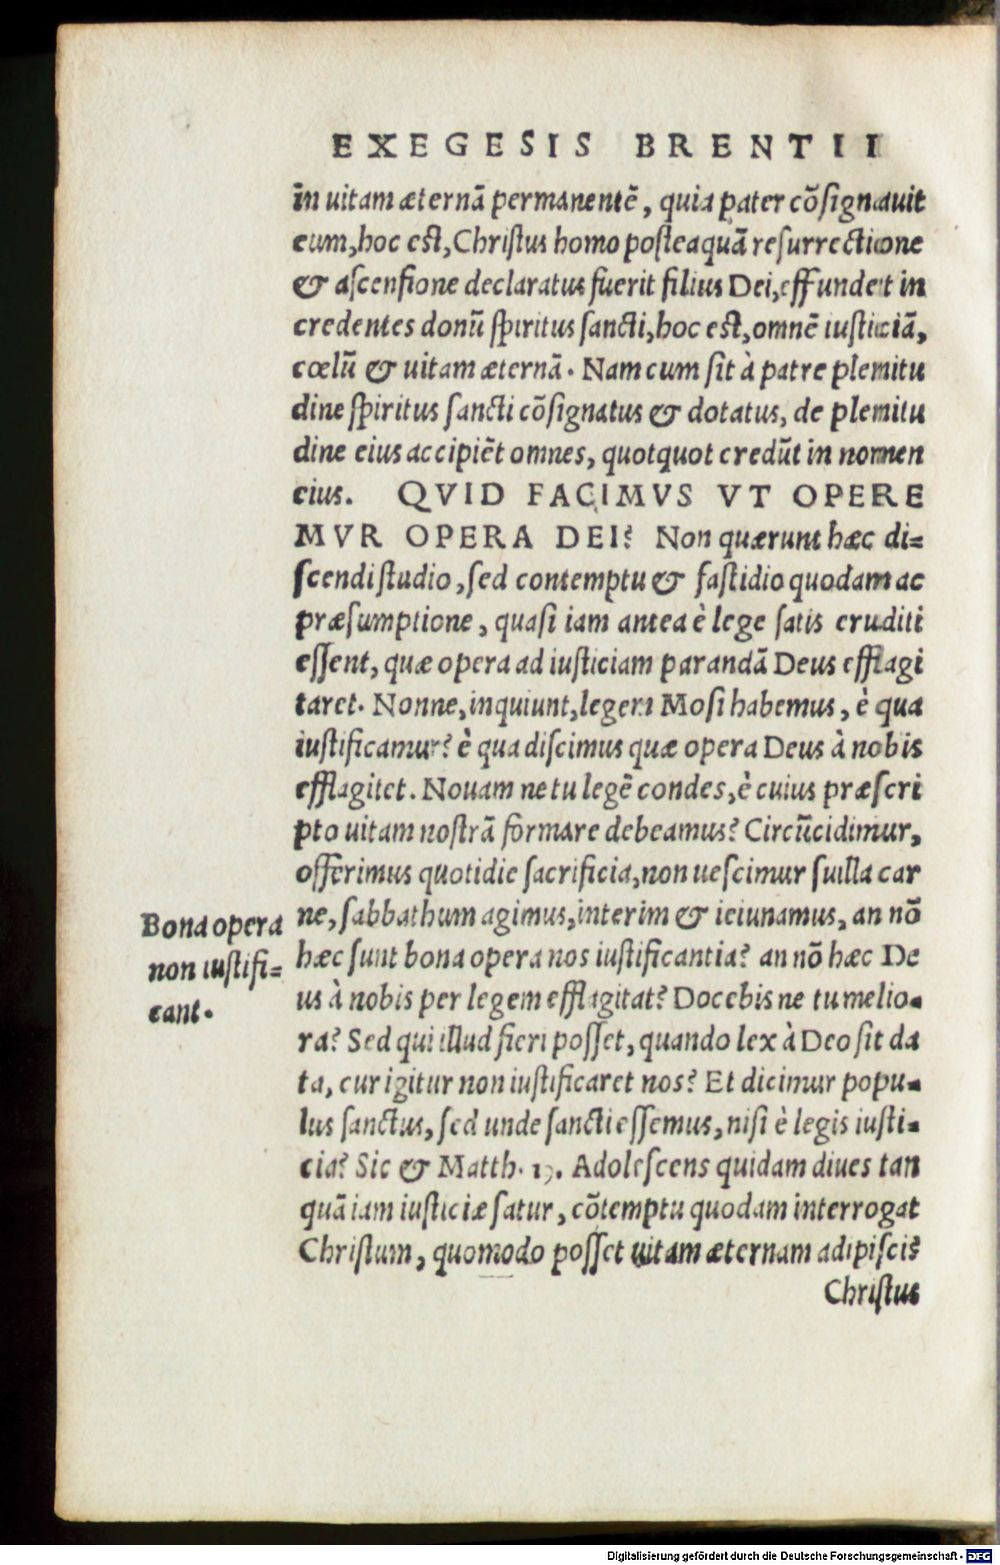 EXEGESIS BRENTII
in uitam æternā permanentē, quia pater cōsignauit
eum, hoc est, Christus homo posteaquā resurrectione
& ascensione declaratus fuerit filius Dei, effundet in
credentes donū spiritus sancti, hoc est, omnē iusticiā,
cœlū & uitam æternā. Nam cum sit à patre plenitu
dine spiritus sancti cōsignatus & dotatus, de plenitu
dine eius accipiēt omnes, quotquot credūt in nomen
eius. QVID FACIMVS VT OPERE
MVR OPERA DEI? Non quærunt hæc di=
scendi studio, sed contemptu & fastidio quodam ac
præsumptione, quasi iam antea è lege satis eruditi
essent, quæ opera ad iusticiam parandā Deus efflagi
taret. Nonne, inquiunt, legem Mosi habemus, è qua
iustificamur? è qua discimus quæ opera Deus à nobis
efflagitet. Nouam ne tu legē condes, è cuius præscri
pto uitam nostrā formare debeamus? Circūcidimur,
offerimus quotidie sacrificia, non uescimur suilla car
ne, sabbathum agimus, interim & ieiunamus, an nō
hæc sunt bona opera nos iustificantia? an nō hæc De
us à nobis per legem efflagitat? Docebis ne tu melio=
ra? Sed qui illud fieri posset, quando lex à Deo sit da
ta, cur igitur non iustificaret nos? Et dicimur popu=
lus sanctus, sed unde sancti essemus, nisi è legis iusti=
cia? Sic & Matth. 19. Adolescens quidam diues tan
quā iam iusticiæ satur, cōtemptu quodam interrogat
Christum, quomodo posset uitam æternam adipisci?
Christus
Bona opera
non iustifi=
cant.
Digitalisierung gefördert durch die Deutsche Forschungsgemeinschaft - DFG